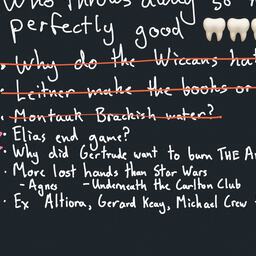 Who throws away so
perfectly good 🦷🦷🦷
• Why do the Wiccans hat
• Leitner make the books or
• Montauk Brackish water?
• Elias end game?
• Why did Gertrude want to burn THE A
• More lost hands than Star Wars
- Agnes - Underneath the Carlton Club
• Ex Altiora, Gerard Keay, Michael Crew